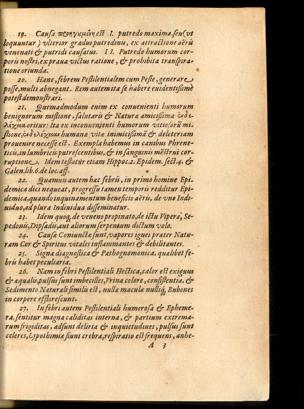 19. Causa προηγουμένη est I. putredo maxima, seu (ut
loquuntur) ulterior gradus putredinis, ex attractione aëris
venenati & putridi causatus. II. Putredo humorum cor-
poris nostri, ex prava victus ratione, & prohibita transpira-
tione oriunda.
20. Hanc, febrem Pestilentialem cum Peste, generare
posse, multi abnegant. Rem autem ita se habere evidentissimè
potest demonstrari.
21. Quemadmodum enim ex convenienti humorum
benignorum mistione, salutaris & Natura amicissima
oritur: Ita ex inconvenienti humorum vitiosorū mi-
stione, humanæ vitæ inimicissimā & deleteriam
provenire necesse est. Exempla habemus in canibus Phrene-
ticis, in lumbricis putrescentibus, & in sanguinis menstrui cor-
ruptione. Idem testatur etiam Hippoc. 2. Epidem. sect. 4. &
Galen. lib. 6. de loc. aff.
22. Quamvis autem hæc febris, in primo homine Epi-
demica dici nequeat, progressu tamen temporis redditur Epi-
demica, quando inquinamentum beneficio aëris, de uno Indi-
viduo, ad plura Individua disseminatur.
23. Idem quoq; de venenis propinatis, de ictu Viperæ, Se-
pedonis, Dipsadis, aut aliorum serpentum dictum volo.
24. Causa Coniuncta sunt, vapores ignei præter Natu-
ram Cor & Spiritus vitales inflammantes & debilitantes.
25. Signa diagnostica & Pathognomonica, quælibet fe-
bris habet peculiaria.
26. Nam in febri Pestilentiali Hectica, calor est exiguus
& æqualis, pulsus sunt imbecilles, Urina colore, consistentia, &
Sedimento Naturali similis est, nulla maculæ nulliq; Bubones
in corpore efflorescunt.
27. In febri autem Pestilentiali humorosa & Epheme-
ra, sentitur magna caliditas interna, & partium extrema-
rum frigiditas, adsunt deliria & inquietudines, pulsus sunt
celeres, Lypothimia sunt crebra, respiratio est frequens, anhe-
A 3